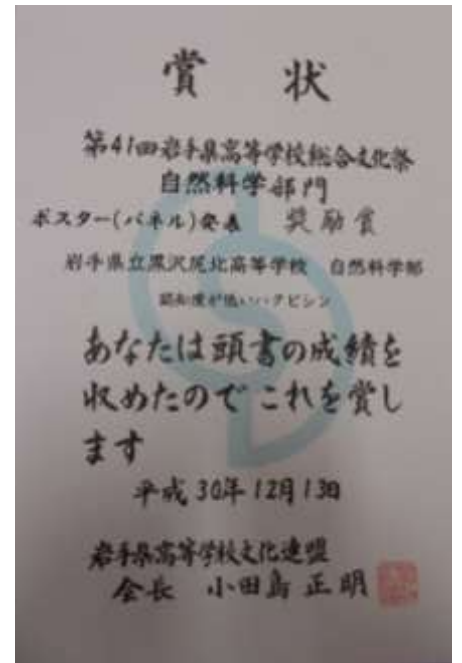 賞 状
第41回岩手県高等学校総合文化祭
自然科学部門
ポスター(パネル)発表 奨励賞
岩手県立黒沢尻北高等学校 自然科学部
認知度が低いハクビシン
あなたは頭書の成績を
収めたのでこれを賞し
ます
平成30年12月13日
岩手県高等学校文化連盟
会長 小田島正明